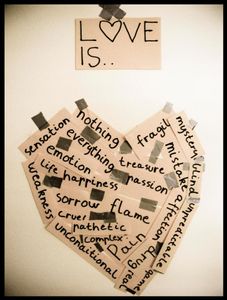 LOVE
IS..
nothing
sensation
everything
emotion
treasure
life
happiness
passion
weakness
sorrow
flame
cruel
pathetic
complex
unconditional
Pain
fragile
mystery
mistake
blind
affection
unpredictable
drug
real
game